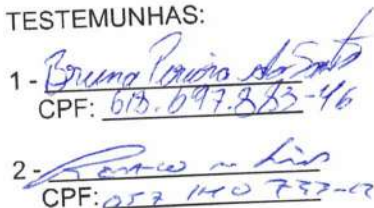 TESTEMUNHAS:
1 - Bruna Pereira dos Santos
CPF: 618.697.883-46
2 -
CPF: 057 140 737-